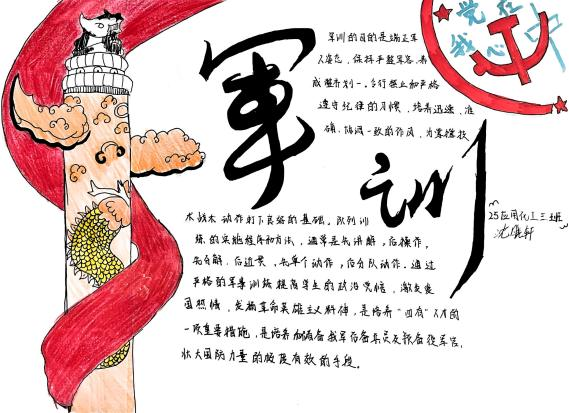 党在
我心中
军训
军训的目的是端正军
人姿态，保持严整军容，养
成整齐划一，令行禁止和严格
遵守纪律的习惯，培养迅速，准
确，协调一致的作风，为掌握技
术战术动作打下良好的基础。队列训
练的实施程序和方法，通常是先讲解，后操作，
先分解，后连贯，先单个动作，后分队动作。通过
严格的军事训练提高学生的政治觉悟，激发爱
国热情，发扬革命英雄主义精神，是培养"四有"人才的
一项重要措施，是培养和储备我军后备兵员及预备役军官，
壮大国防力量的极度有效的手段。
25应用化工三班
沈
轩